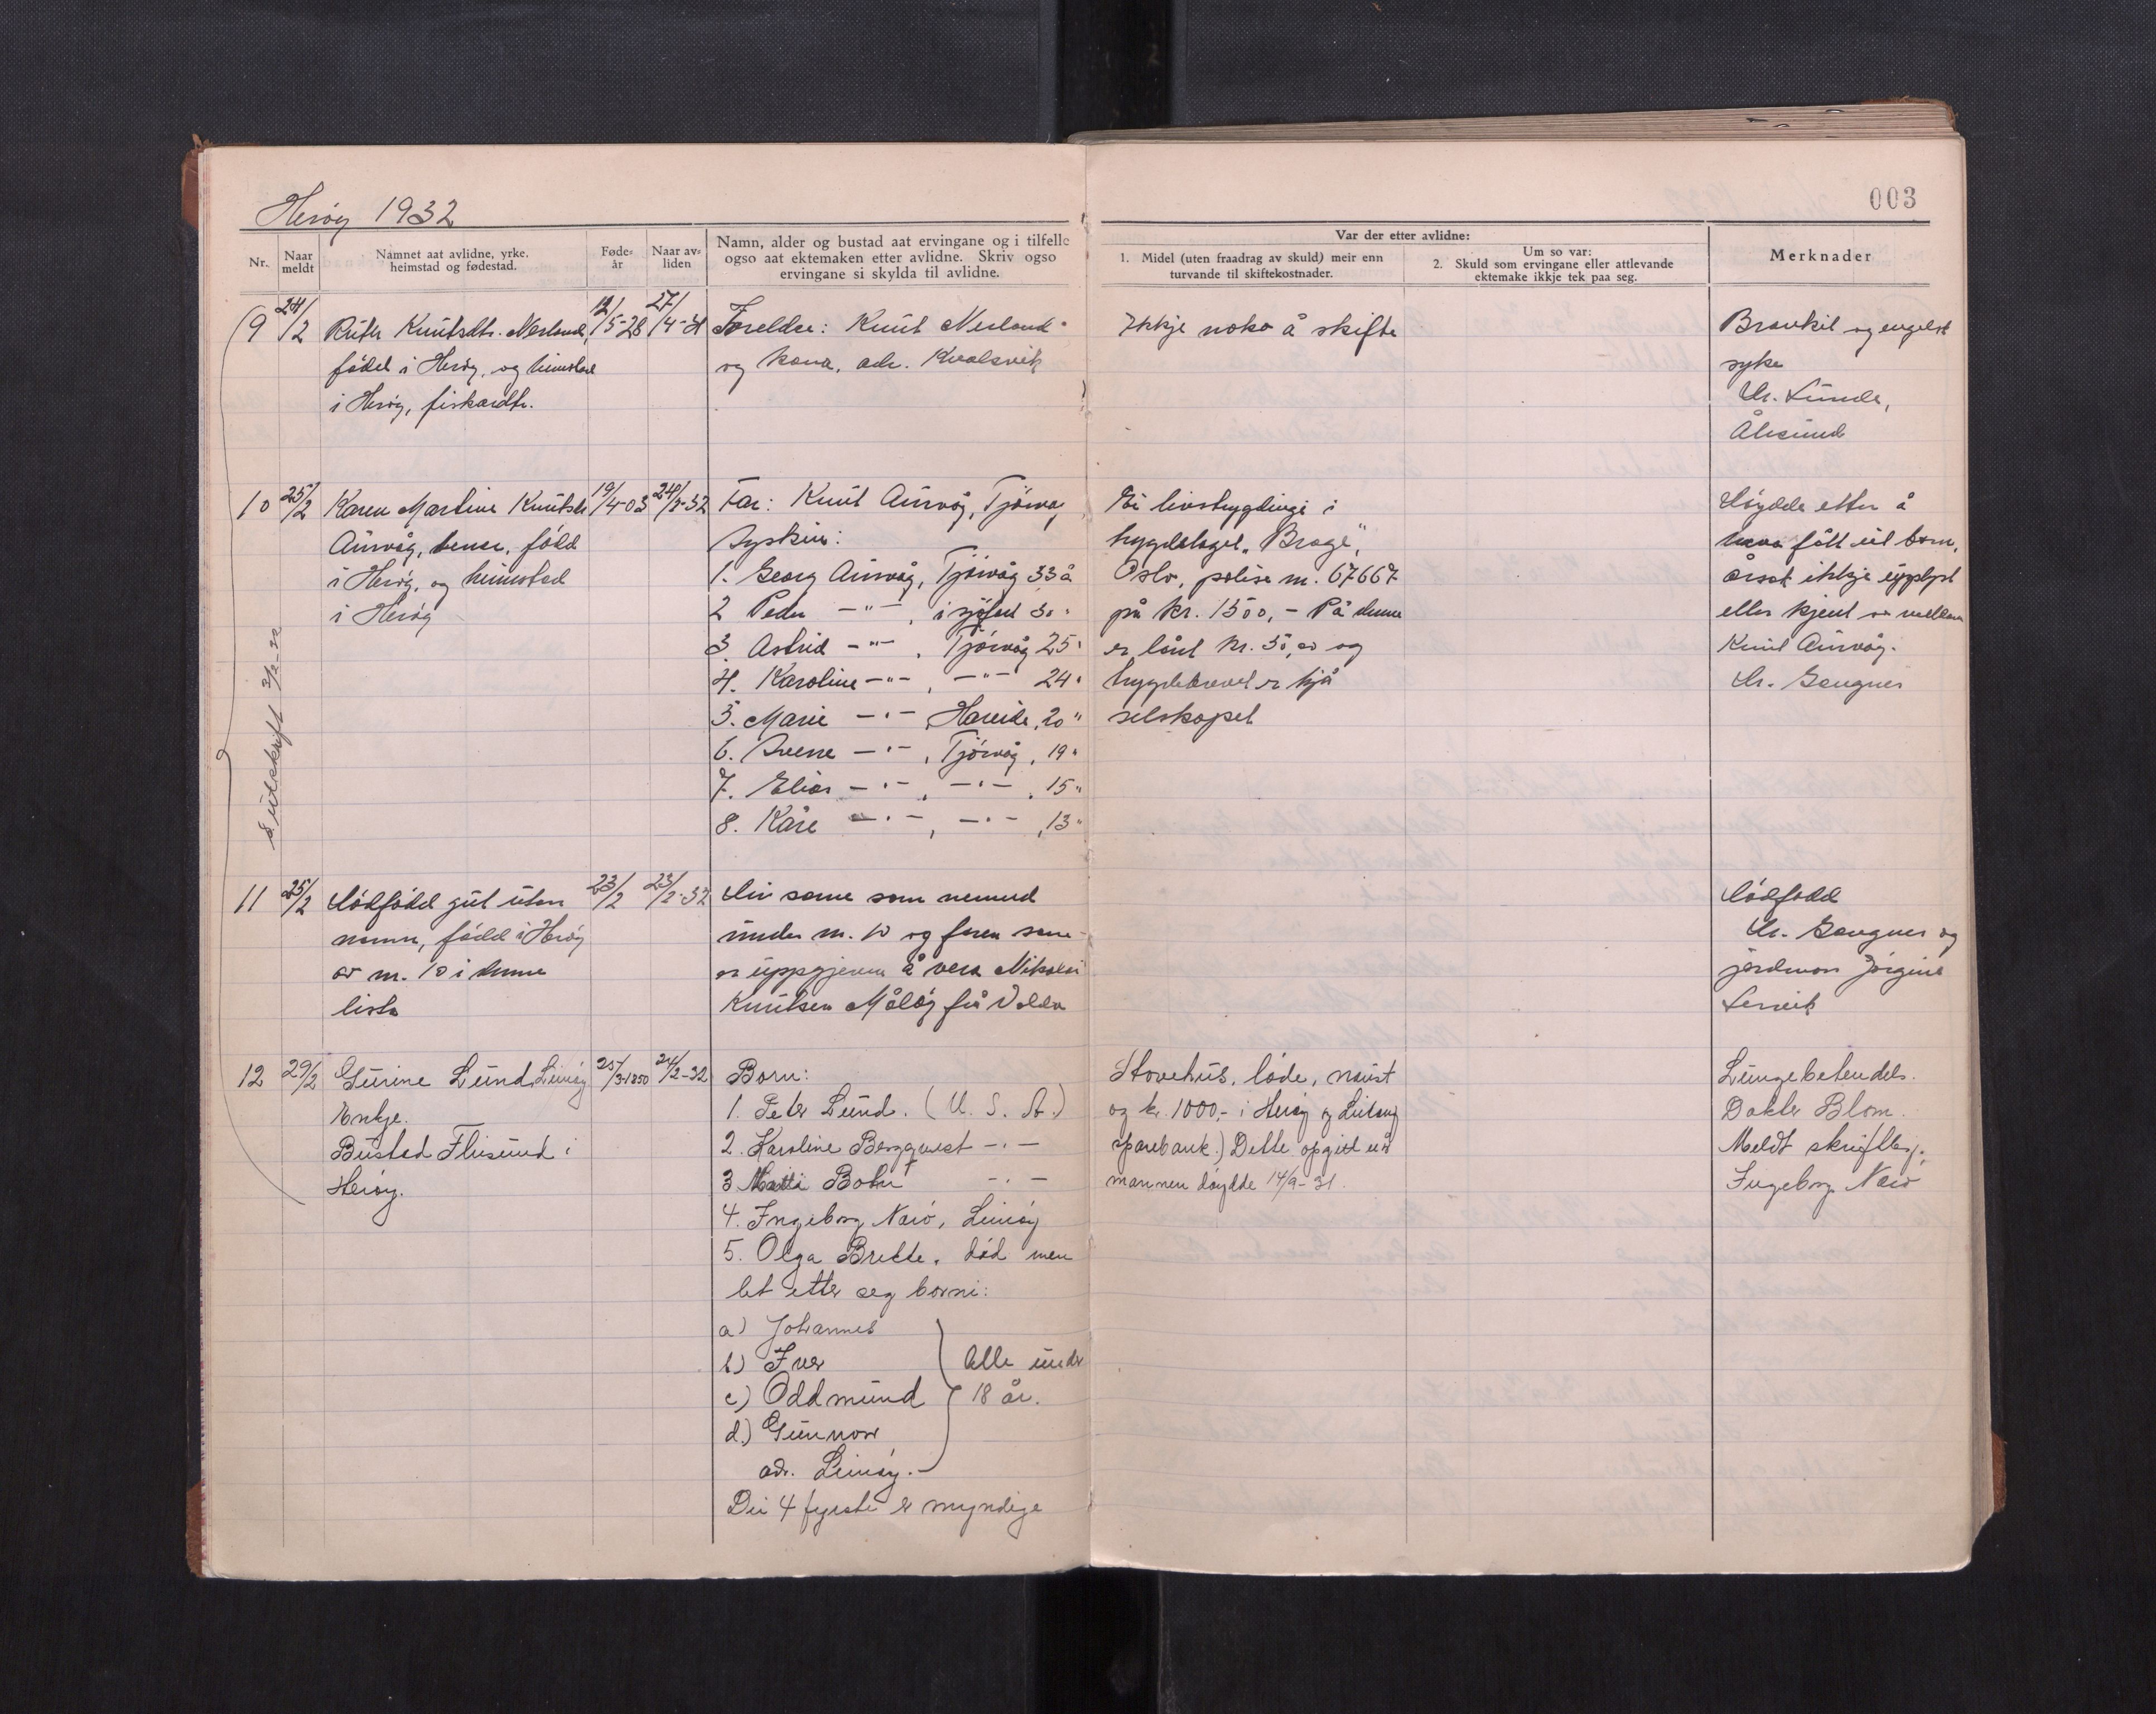 Herøy 1932
003
Nr.
Naar meldt
Namnet aat avlidne, yrke, heimstad og fødestad.
Føde-år
Naar av-liden
Namn, alder og bustad aat ervingane og i tilfelle
ogso aat ektemaken etter avlidne. Skriv ogso
ervingane si skylda til avlidne.
Var der etter avlidne:
1. Midel (uten fraadrag av skuld) meir enn
turvande til skiftekostnader.
Um so var:
2. Skuld som ervingane eller attlevande
ektemake ikkje tek paa seg.
Merknader
9 24/2 Ruth Knutsdtr. Nerland, 12/5-28 27/4-31
fødd i Herøy, og heimstad
i Herøy, fiskardtr.
Foreldre: Knut Nerland
og kona, adr. Kvalsvik
Ikkje noko å skifte
Bronkit og engelsk
syke
Dr. Lunde,
Ålesund
10 25/2 Karen Martine Knutsdtr 19/4-03 24/2-32
Aurvåg, tense, fødd
i Herøy, og heimstad
i Herøy
Far: Knut Aurvåg, Tjørvåg
Syskin:
1. Georg Aurvåg, Tjørvåg 33 å
2 Peder -"- , i sjøfart 30 "
3. Astrid -"- , Tjørvåg 25 "
4. Karoline -"- , -"- 24 "
5. Marie -"- , Hareide, 20 "
6. Sverre -"- , Tjørvåg, 19 "
7. Elias -"- , -"- , 15 "
8. Kåre -"- , -"- , 13 "
Ei livstrygding i
trygdelaget "Brage",
Oslo, polise nr. 67667
på kr. 1500,- På denne
er lånt kr. 50,00 og
trygdebrevet er hjå
selskapet
Døydde etter å
hava fått eit born,
årsak ikkje upplyst
eller kjent
Knut Aurvåg.
Dr. Gangnes
S utskrift 3/3-32
11 25/2 Dødfødd gut utan 23/2 23/2-32
namn, fødd i Herøy
av nr. 10 i denne
lista
Dei same som nemnd
under nr. 10 og faren som
er uppgjeven å vera Nikolai
Knutsen Måløy frå Volda
Dødfødd
Dr. Gangnes og
jordmor Jørgine
Lervik
12 29/2 Gurine Lund, Leinøy 25/3-1850 24/2-32
Enkje.
Bustad Flusund i
Herøy.
Born:
1. Peter Lund. (U. S. A.)
2. Karoline Bergquest -"-
3 Matti Bohn -"-
4. Ingeborg Nærø, Leinøy
5. Olga Brekke, død men
let etter seg borni:
a) Johannes
b) Iver
c) Oddmund
d.) Gunnor
adr. Leinøy.
Alle under
18 år.
Dei 4 fyrste er myndige
Stovehus, løde, naust
og kr. 1000,- i Herøy og Leikong
sparebank.) Dette opgitt når
mannen døydde 14/9-31.
Lungebetendels.
Dokter Blom.
Meldt skriftleg.
Ingeborg Nærø